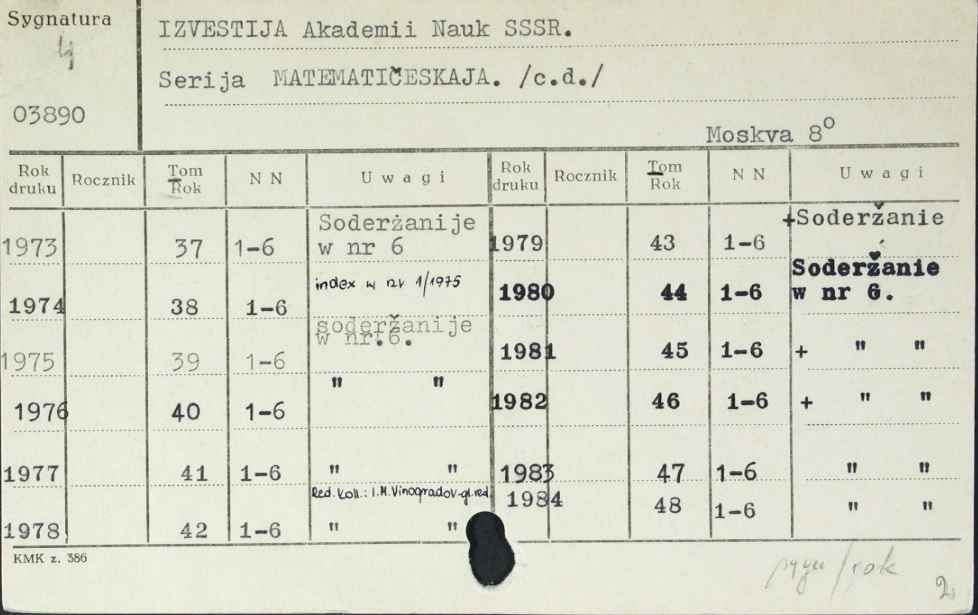 Sygnatura
4
03890
IZVESTIJA Akademii Nauk SSSR.
Serija MATEMATIČESKAJA. /c.d./
Moskva 8°
Rok druku Rocznik Tom Rok N N Uwagi Rok druku Rocznik Tom Rok N N Uwagi
1973 37 1-6 Soderżanije w nr 6
1974 38 1-6 index w nr 1/1975
1975 39 1-6 soderžanije w nr.6.
1976 40 1-6 " "
1977 41 1-6 " "
Red. Koll.: I.M.Vinogradov-gl.red
1978 42 1-6 " "
1979 43 1-6 +Soderžanie
1980 44 1-6 Soderžanie w nr 6.
1981 45 1-6 + " "
1982 46 1-6 + " "
1983 47 1-6 " "
1984 48 1-6 " "
KMK z. 386
/rok
2